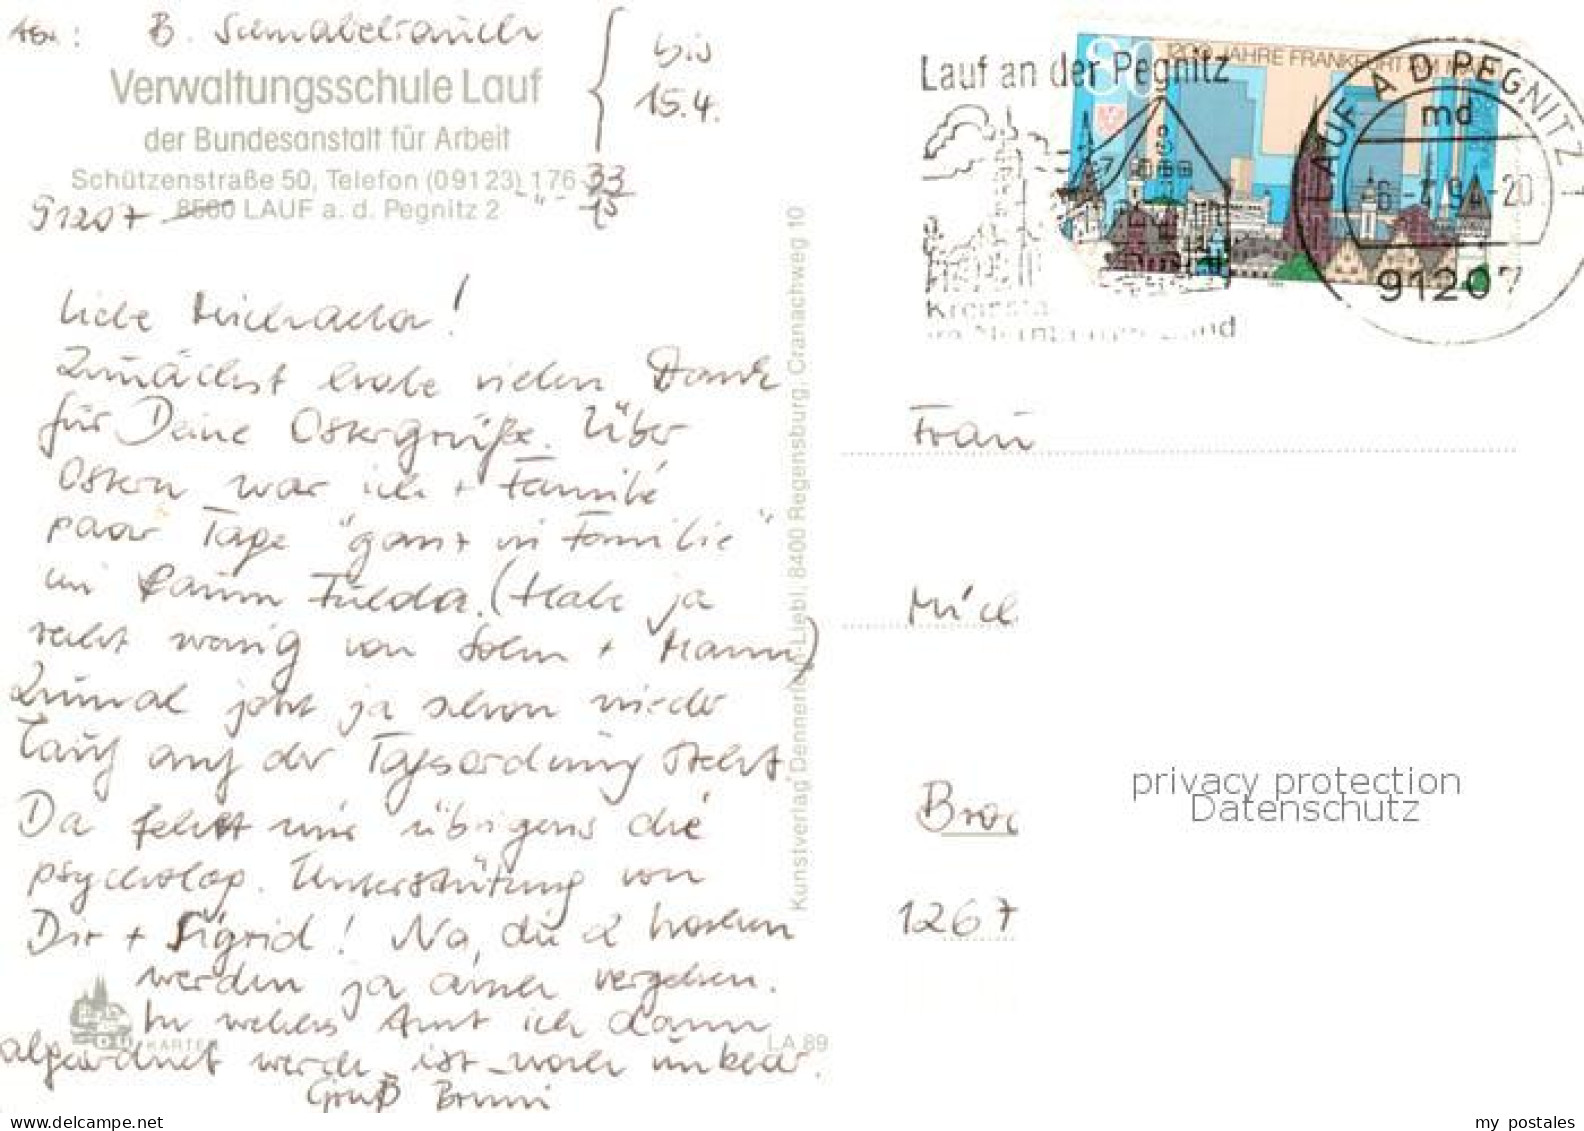 Abs.: B. Schnabelrauch
bis
15.4.
Verwaltungsschule Lauf
der Bundesanstalt für Arbeit
Schützenstraße 50, Telefon (09123) 176 33
91207 8560 LAUF a. d. Pegnitz 2 - " - 10
Liebe Michaela!
Zunächst habe vielen Dank
für Deine Ostergrüße. Über
Ostern war ich + Familie
paar Tage "ganz in Familie"
im Raum Fulda. (Habe ja
recht wenig von Sohn + Mann)
Zumal jetzt ja schon wieder
Lauf auf der Tagesordnung steht.
Da fehlt mir übrigens die
psycholog. Unterstützung von
Dir + Sigrid! Na, die 2 Wochen
werden ja auch vergehen.
In welches Amt ich dann
abgeordnet werde ist noch unklar.
Gruß Bruni
KARTE
LA 89
Kunstverlag Dennerlein-Liebl, 8400 Regensburg, Cranachweg 10
Lauf an der Pegnitz
80 1200 JAHRE FRANKFURT AM MAIN
LAUF A D PEGNITZ 1
md
-20
91207
Frau
Mich
Broc
1267
privacy protection
Datenschutz
www.delcampe.net
my postales